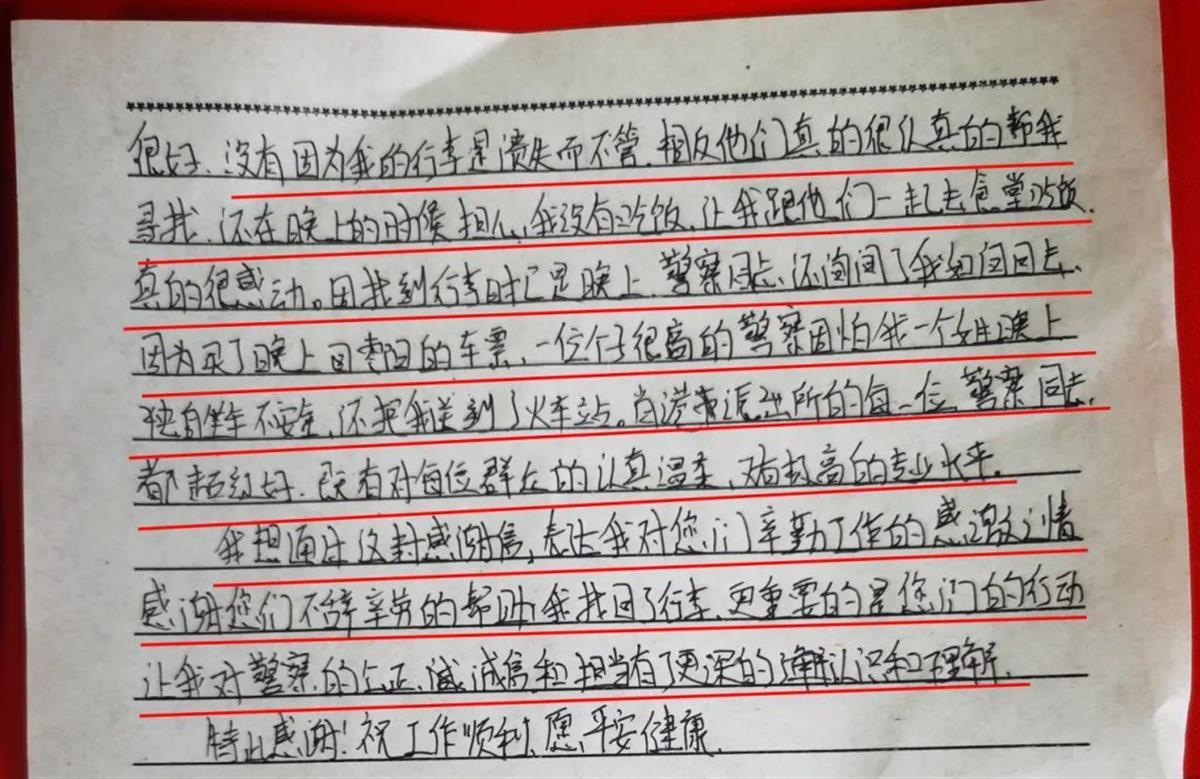 很好、没有因为我的行李是遗失而不管、相反他们真的很认真的帮我
寻找、还在晚上的时候担心我没有吃饭、让我跟他们一起去食堂吃饭、
真的很感动。因找到行李时已是晚上、警察同志、还询问了我如何回去、
因为买了晚上回枣阳的车票、一位个子很高的警察因怕我一个女生晚上
独自坐车不安全、还把我送到了火车站。肖港派出所的每一位警察同志、
都超级好、既有对每位群众的认真温柔、又有极高的专业水平。
我想通过这封感谢信,表达我对您们辛勤工作的感激之情
感谢您们不辞辛劳的帮助我找回了行李、更重要的是您们的行动
让我对警察的公正、诚信和担当有了更深的认识和理解、
特此感谢!祝工作顺利、愿平安健康、